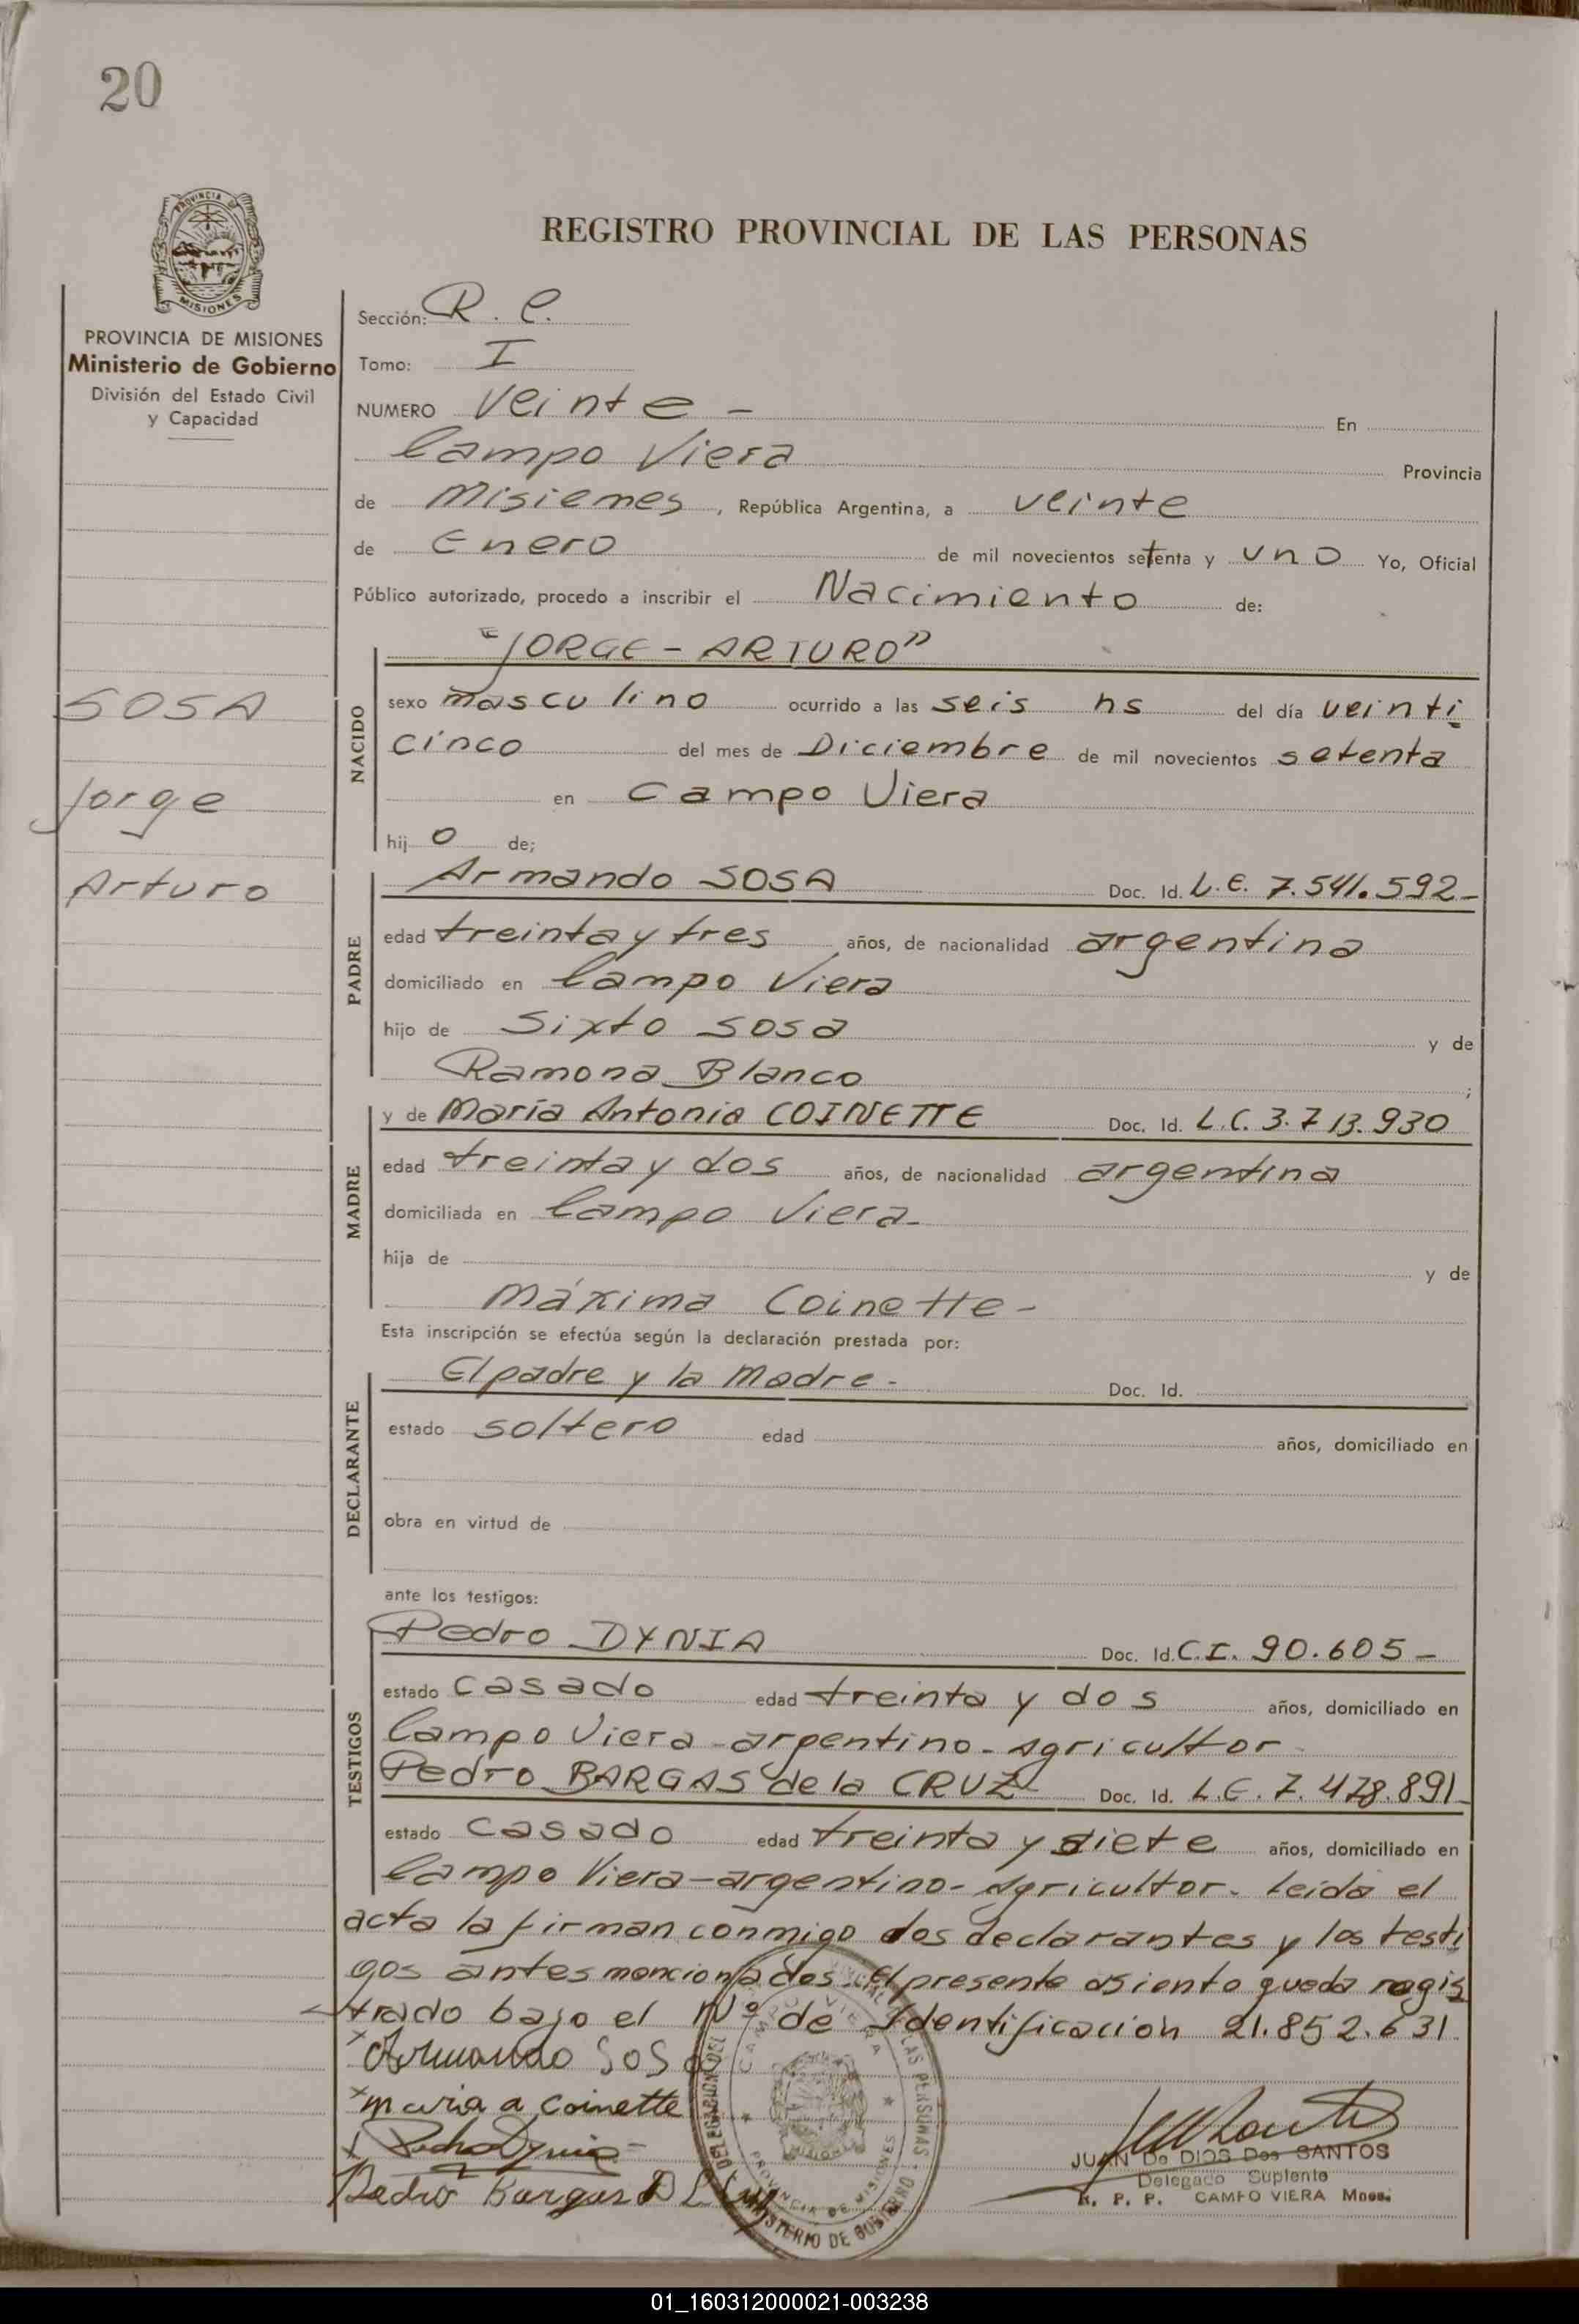 20
PROVINCIA DE
MISIONES
REGISTRO PROVINCIAL DE LAS PERSONAS
PROVINCIA DE MISIONES
Ministerio de Gobierno
División del Estado Civil
y Capacidad
SOSA
Jorge
Arturo
Sección: R. C.
Tomo: I
NUMERO Veinte - En
Campo Viera Provincia
de Misiones, República Argentina, a veinte
de Enero de mil novecientos setenta y uno Yo, Oficial
Público autorizado, procedo a inscribir el Nacimiento de:
NACIDO
"JORGE - ARTURO"
sexo masculino ocurrido a las seis hs del día veinti
cinco del mes de Diciembre de mil novecientos setenta
en Campo Viera
hijo de;
PADRE
Armando SOSA Doc. Id. L.E. 7.541.592-
edad treinta y tres años, de nacionalidad argentina
domiciliado en Campo Viera
hijo de Sixto Sosa y de
Ramona Blanco ;
MADRE
y de María Antonia COINETTE Doc. Id. L.C. 3.713.930
edad treinta y dos años, de nacionalidad argentina
domiciliada en Campo Viera-
hija de y de
Máxima Coinette-
Esta inscripción se efectúa según la declaración prestada por:
DECLARANTE
El padre y la Madre- Doc. Id.
estado soltero edad años, domiciliado en
obra en virtud de
ante los testigos:
TESTIGOS
Pedro DYNIA Doc. Id. C.I. 90.605-
estado casado edad treinta y dos años, domiciliado en
Campo Viera-argentino-Agricultor
Pedro BARGAS de la CRUZ Doc. Id. L.E. 7.478.891-
estado casado edad treinta y siete años, domiciliado en
Campo Viera-argentino-Agricultor. Leida el
acta la firman conmigo dos declarantes y los testi
gos antes mencionados. El presente asiento queda regis
trado bajo el Nº de Identificación 21.852.631.
x Armando Sosa
x maria a coinette
x Pedro Dynia
Pedro Bargas D L Cruz
DELEGACION DEL
LAS PERSONAS
CAMPO VIERA
PROVINCIA DE MISIONES
MINISTERIO DE GOBIERNO
JUAN De DIOS Dos SANTOS
Delegado Suplente
R. P. P. CAMPO VIERA Mnes.
01_160312000021-003238